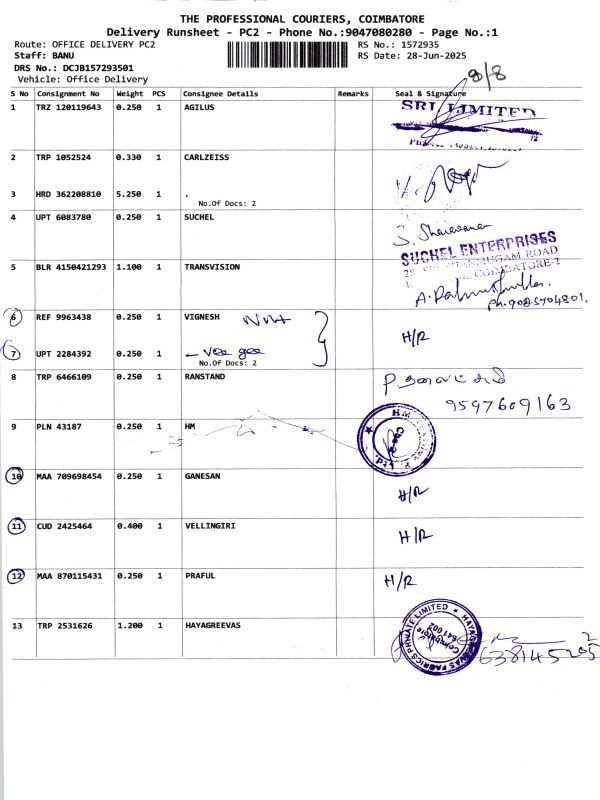 THE PROFESSIONAL COURIERS, COIMBATORE
Delivery Runsheet - PC2 - Phone No.:9047080280 - Page No.:1
Route: OFFICE DELIVERY PC2
Staff: BANU
DRS No.: DCJB157293501
Vehicle: Office Delivery
RS No.: 1572935
RS Date: 28-Jun-2025
8/8
S No Consignment No Weight PCS Consignee Details Remarks Seal & Signature
1 TRZ 120119643 0.250 1 AGILUS
SRL LIMITED
2 TRP 1052524 0.330 1 CARLZEISS
3 HRD 362208810 5.250 1 .
No.Of Docs: 2
4 UPT 6083780 0.250 1 SUCHEL
SUCHEL ENTERPRISES
COIMBATORE-2
5 BLR 4150421293 1.100 1 TRANSVISION
6 REF 9963438 0.250 1 VIGNESH
H/R
7 UPT 2284392 0.250 1
No.Of Docs: 2
8 TRP 6466109 0.250 1 RANSTAND
9597609163
9 PLN 43187 0.250 1 HM
HM
10 MAA 709698454 0.250 1 GANESAN H/R
11 CUD 2425464 0.400 1 VELLINGIRI H/R
12 MAA 870115431 0.250 1 PRAFUL H/R
13 TRP 2531626 1.200 1 HAYAGREEVAS
FABRICS PRIVATE LIMITED
Coimbatore
641 002